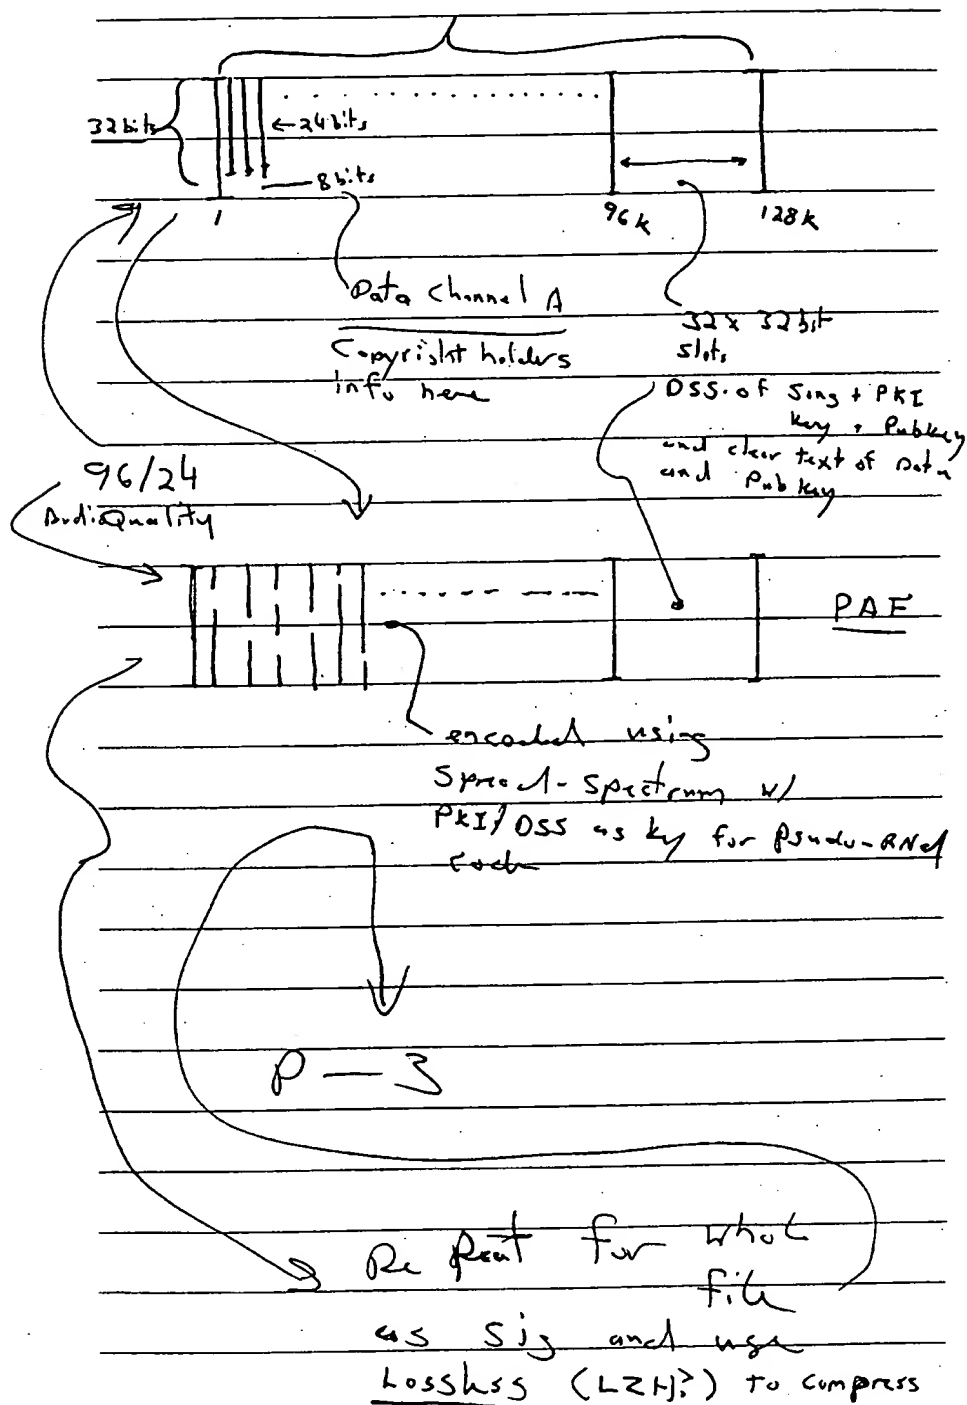 32 bits
←24 bits
8 bits
1
96k
128k
Data Channel A
Copyright holders
info here
32 x 32 bit
slots
DSS of Song + PKI
key + Pubkey
and clear text of Data
and Pub key
96/24
Audio Quality
PAF
encoded using
Spread-Spectrum w/
PKI/DSS as key for Psudo-RNd
code
P—3
Repeat for whole
file
as sig and use
Lossless (LZH?) to compress